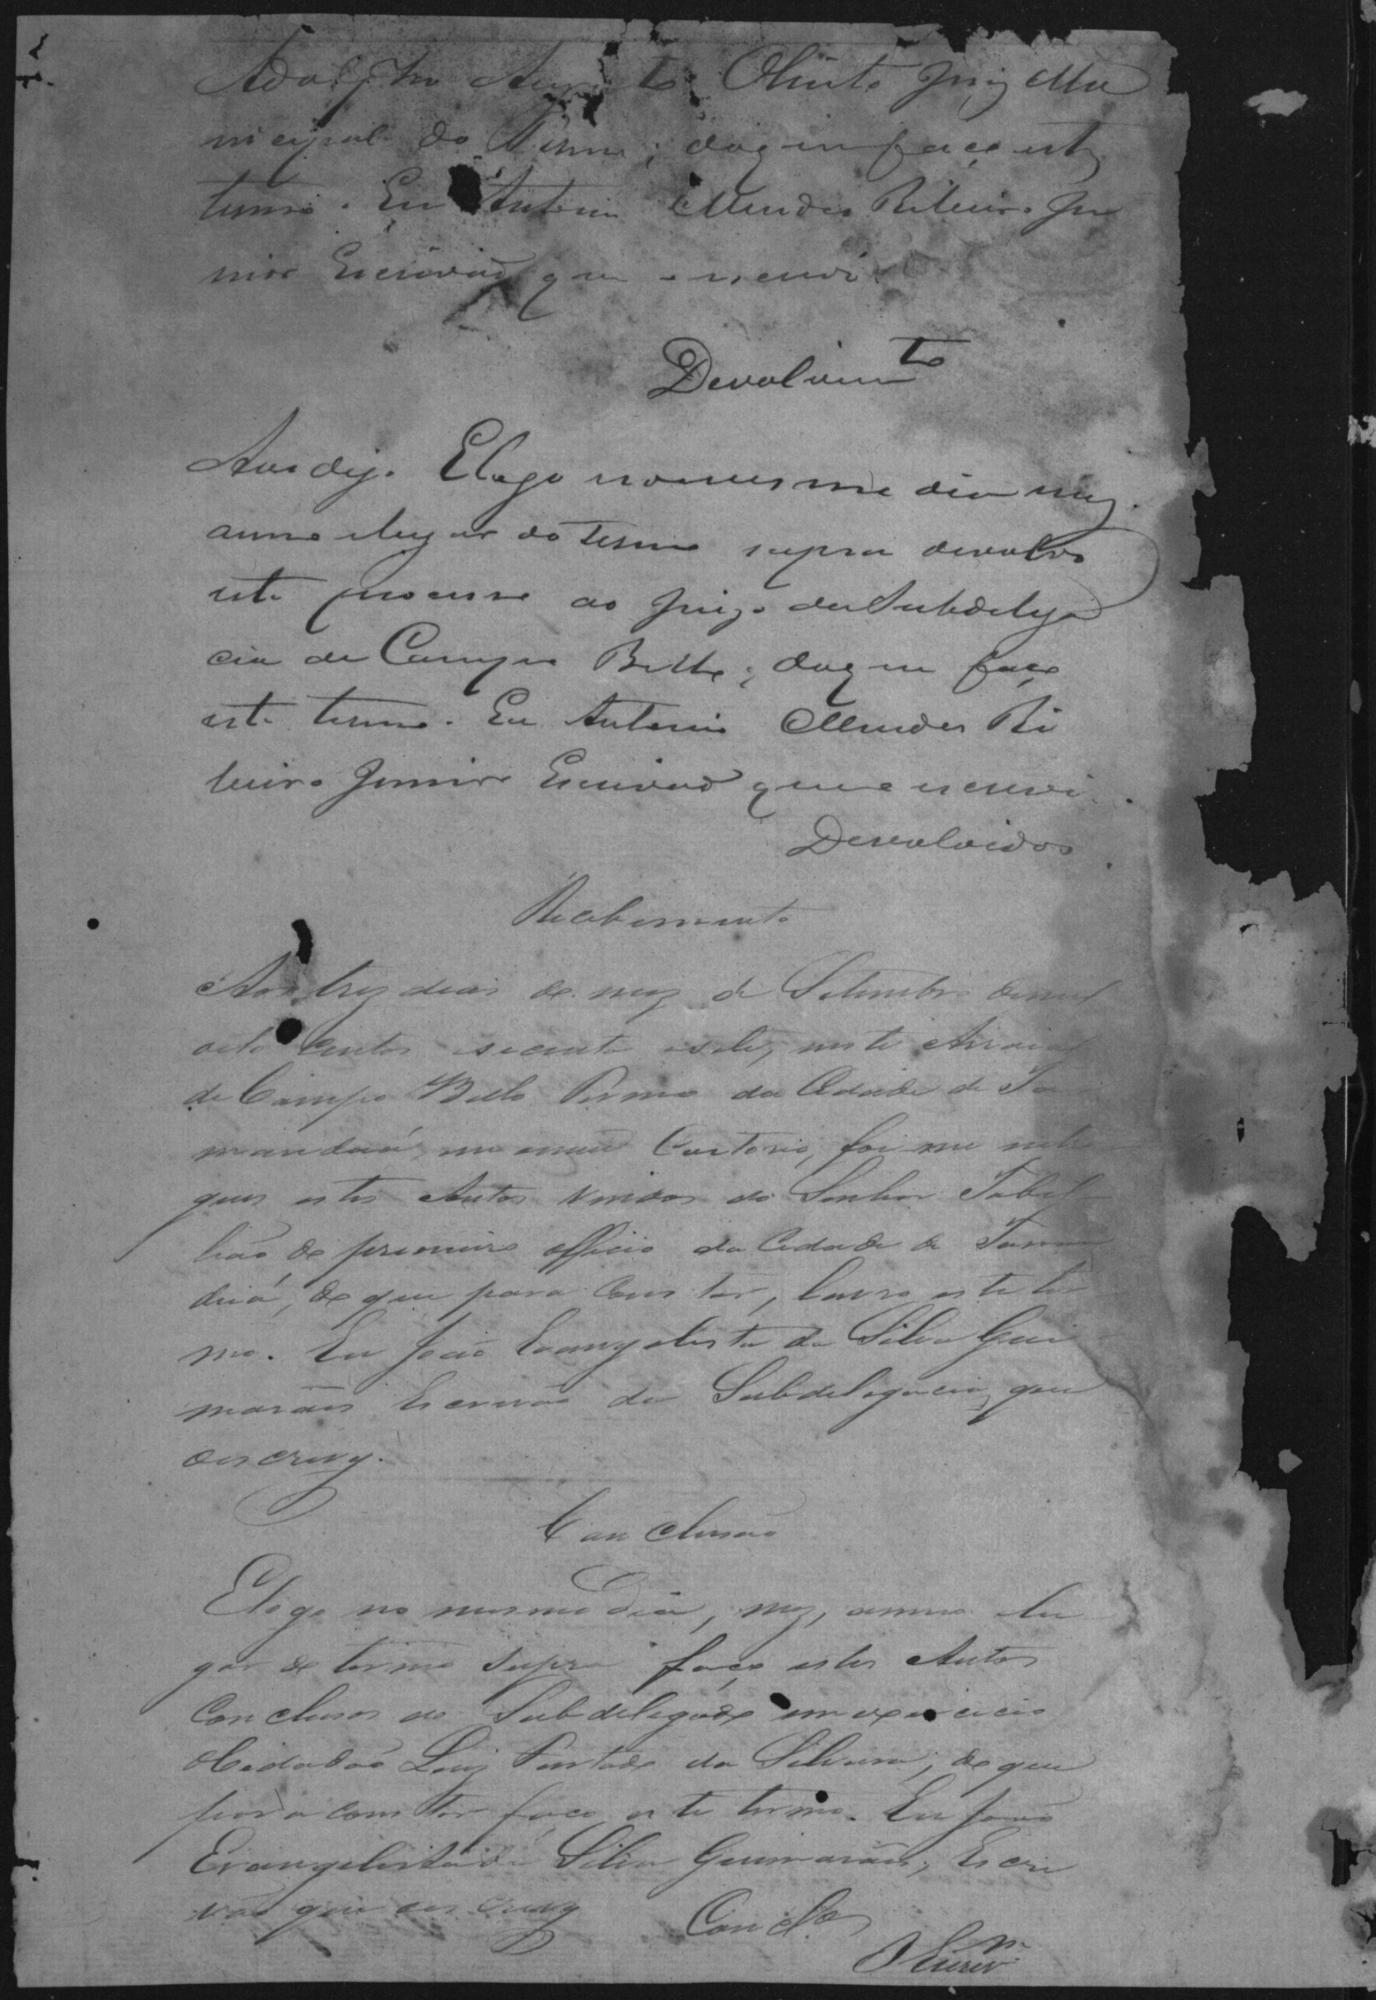 Adolpho Augusto Olinto Juiz Mu
nicipal do Termo; do q. faço este
termo. Eu Antonio Mendes Ribeiro Ju
nior Escrivaõ que escrevi.
Devolvim.to
Aos digo. E logo no mesmo dia mez
anno e lugar do termo supra devolvo
este processo ao Juizo da Subdelega
cia de Campo Bello; do que faço
este termo. Eu Antonio Mendes Ri
beiro Junior Escrivaõ que escrevi.
Devolvidos
Recebimento
Aos trez dias do mez de Setembro de mil
oito centos secenta e sete, neste Arraial
de Campo Bello Termo da Cidade de Ta
manduá em meu Cartorio, foi me entre
gues estes Autos vindos do Senhor Tabel
liaõ do primeiro officio da Cidade de Taman
duá, do que para constar, lavro este ter
mo. Eu Joaõ Evangelista da Silva Gui
marães Escrivaõ da Subdelegacia, que
o escrevy.
Conclusaõ
E logo no mesmo dia, mez, anno e lu
gar do termo supra faço estes Autos
Conclusos ao Subdelegado em exercicio
o Cidadaõ Luiz Furtado da Silveira, do que
para constar faço este termo. Eu Joaõ
Evangelista da Silva Guimarães, Escri
vaõ que o escrevy
Concl.os
O Escriv.m